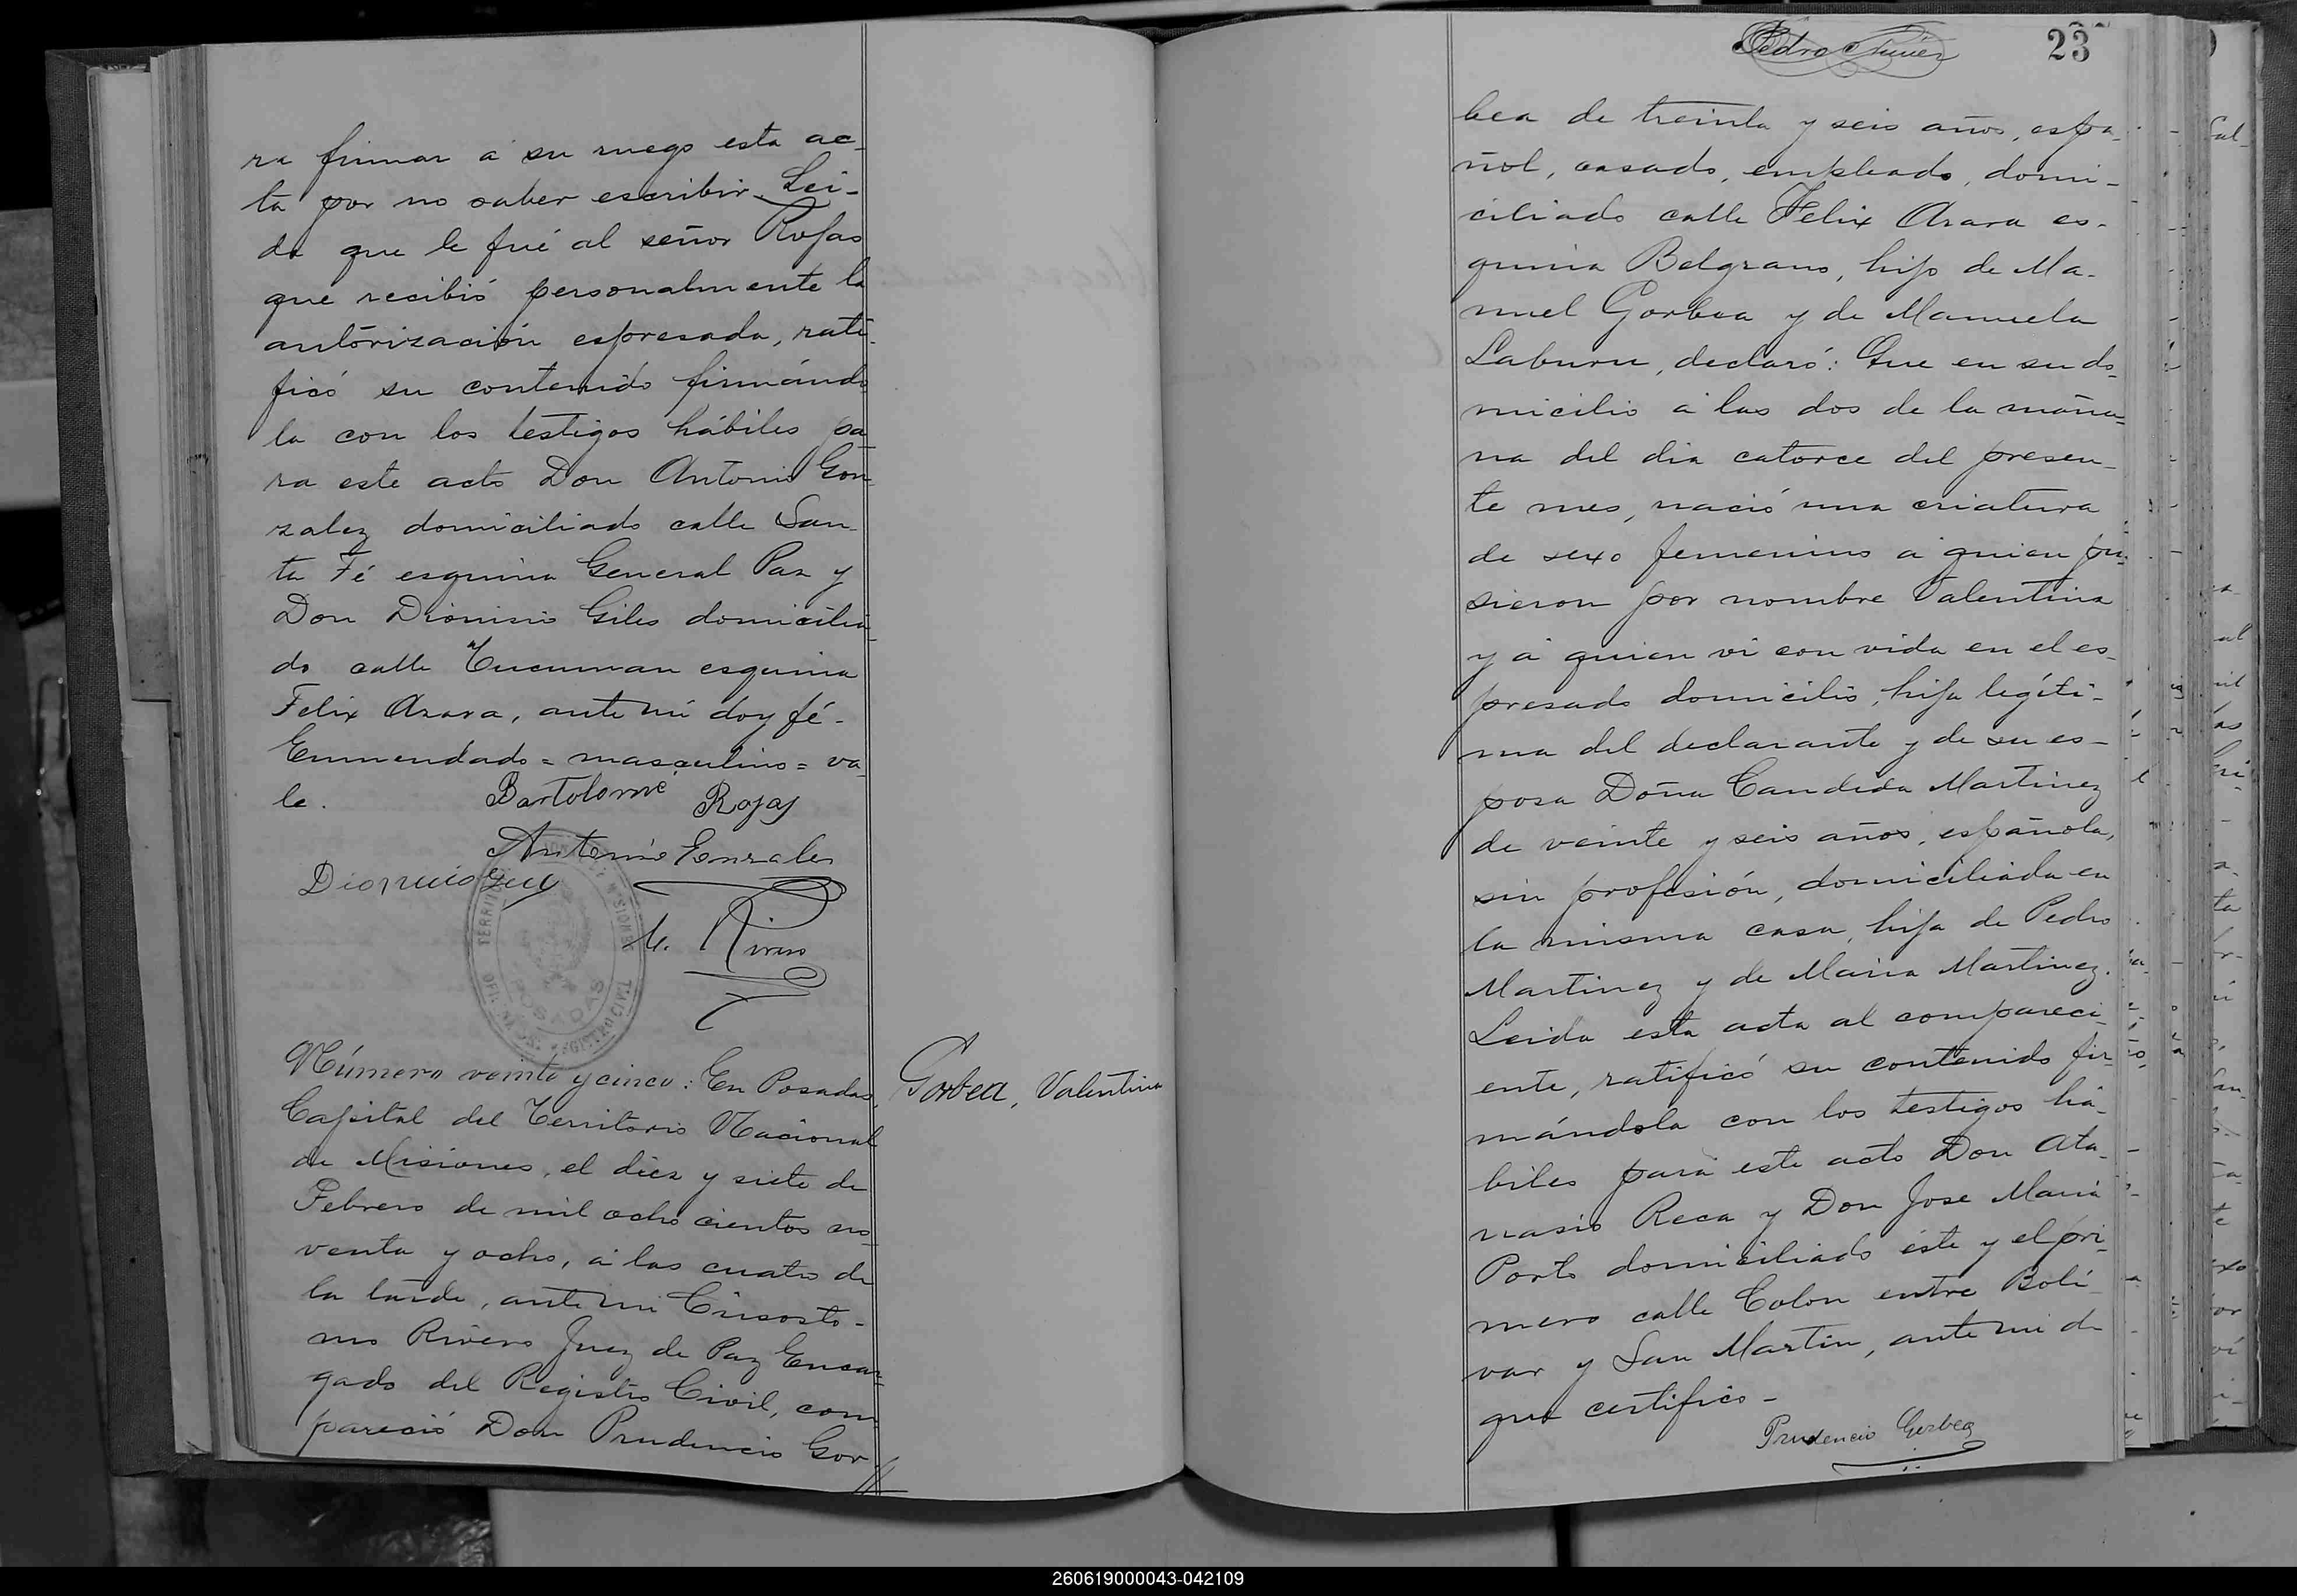 ra firmar á su ruego esta ac-
ta por no saber escribir. Lei-
da que le fué al señor Rojas
que recibió personalmente la
autorización espresada, rati-
ficó su contenido firmándo
la con los testigos hábiles pa-
ra este acto Don Antonio Gon-
zalez domiciliado calle San-
ta Fé esquina General Paz y
Don Dionisio Giles domicilia-
do calle Tucuman esquina
Felix Azara, ante mi doy fé-
Enmendado = masculino = va-
le.
Bartolomé Rojas
Antonio Gonzales
Dionicio
M. Rivero
TERRITORIO MISIONES
POSADAS
REGISTRO CIVIL
Número veinte y cinco: En Posadas,
Capital del Territorio Nacional
de Misiones, el diez y siete de
Febrero de mil ochocientos no-
venta y ocho, á las cuatro de
la tarde, ante mi Crisósto-
mo Rivero Juez de Paz Encar-
gado del Registro Civil, com-
pareció Don Prudencio Gor
Gorbea, Valentina
Pedro
23
bea de treinta y seis años, espa-
ñol, casado, empleado, domi-
ciliado calle Felix Azara es-
quina Belgrano, hijo de Ma-
nuel Gorbea y de Manuela
Laburu, declaró: Que en su do-
micilio á las dos de la maña-
na del dia catorce del presen-
te mes, nació una criatura
de sexo femenino á quien pu-
sieron por nombre Valentina
y á quien vi con vida en el es-
presado domicilio, hija legíti-
ma del declarante y de su es-
posa Doña Candida Martinez
de veinte y seis años, española,
sin profesión, domiciliada en
la misma casa, hija de Pedro
Martinez y de Maria Martinez.
Leida esta acta al compareci-
ente, ratificó su contenido fir-
mándola con los testigos há-
biles para este acto Don Ata-
nasio Reca y Don Jose Maria
Porto domiciliado éste y el pri-
mero calle Colon entre Boli-
var y San Martin, ante mi de
que certifico-
Prudencio Gorbea
260619000043-042109